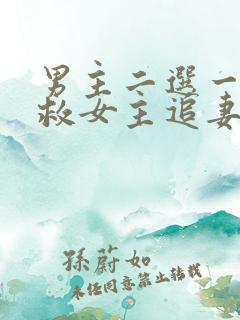 男主二選一
救女主追妻
孫蔚如
未經同意禁止转載